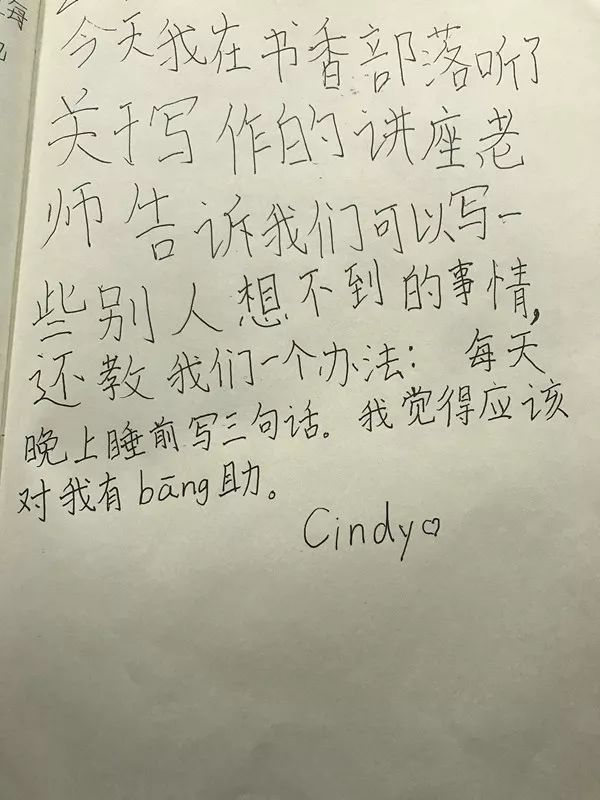 今天我在书香部落听了
关于写作的讲座老
师告诉我们可以写一
些别人想不到的事情,
还教我们一个办法：每天
晚上睡前写三句话。我觉得应该
对我有bāng助。
Cindy♡
每